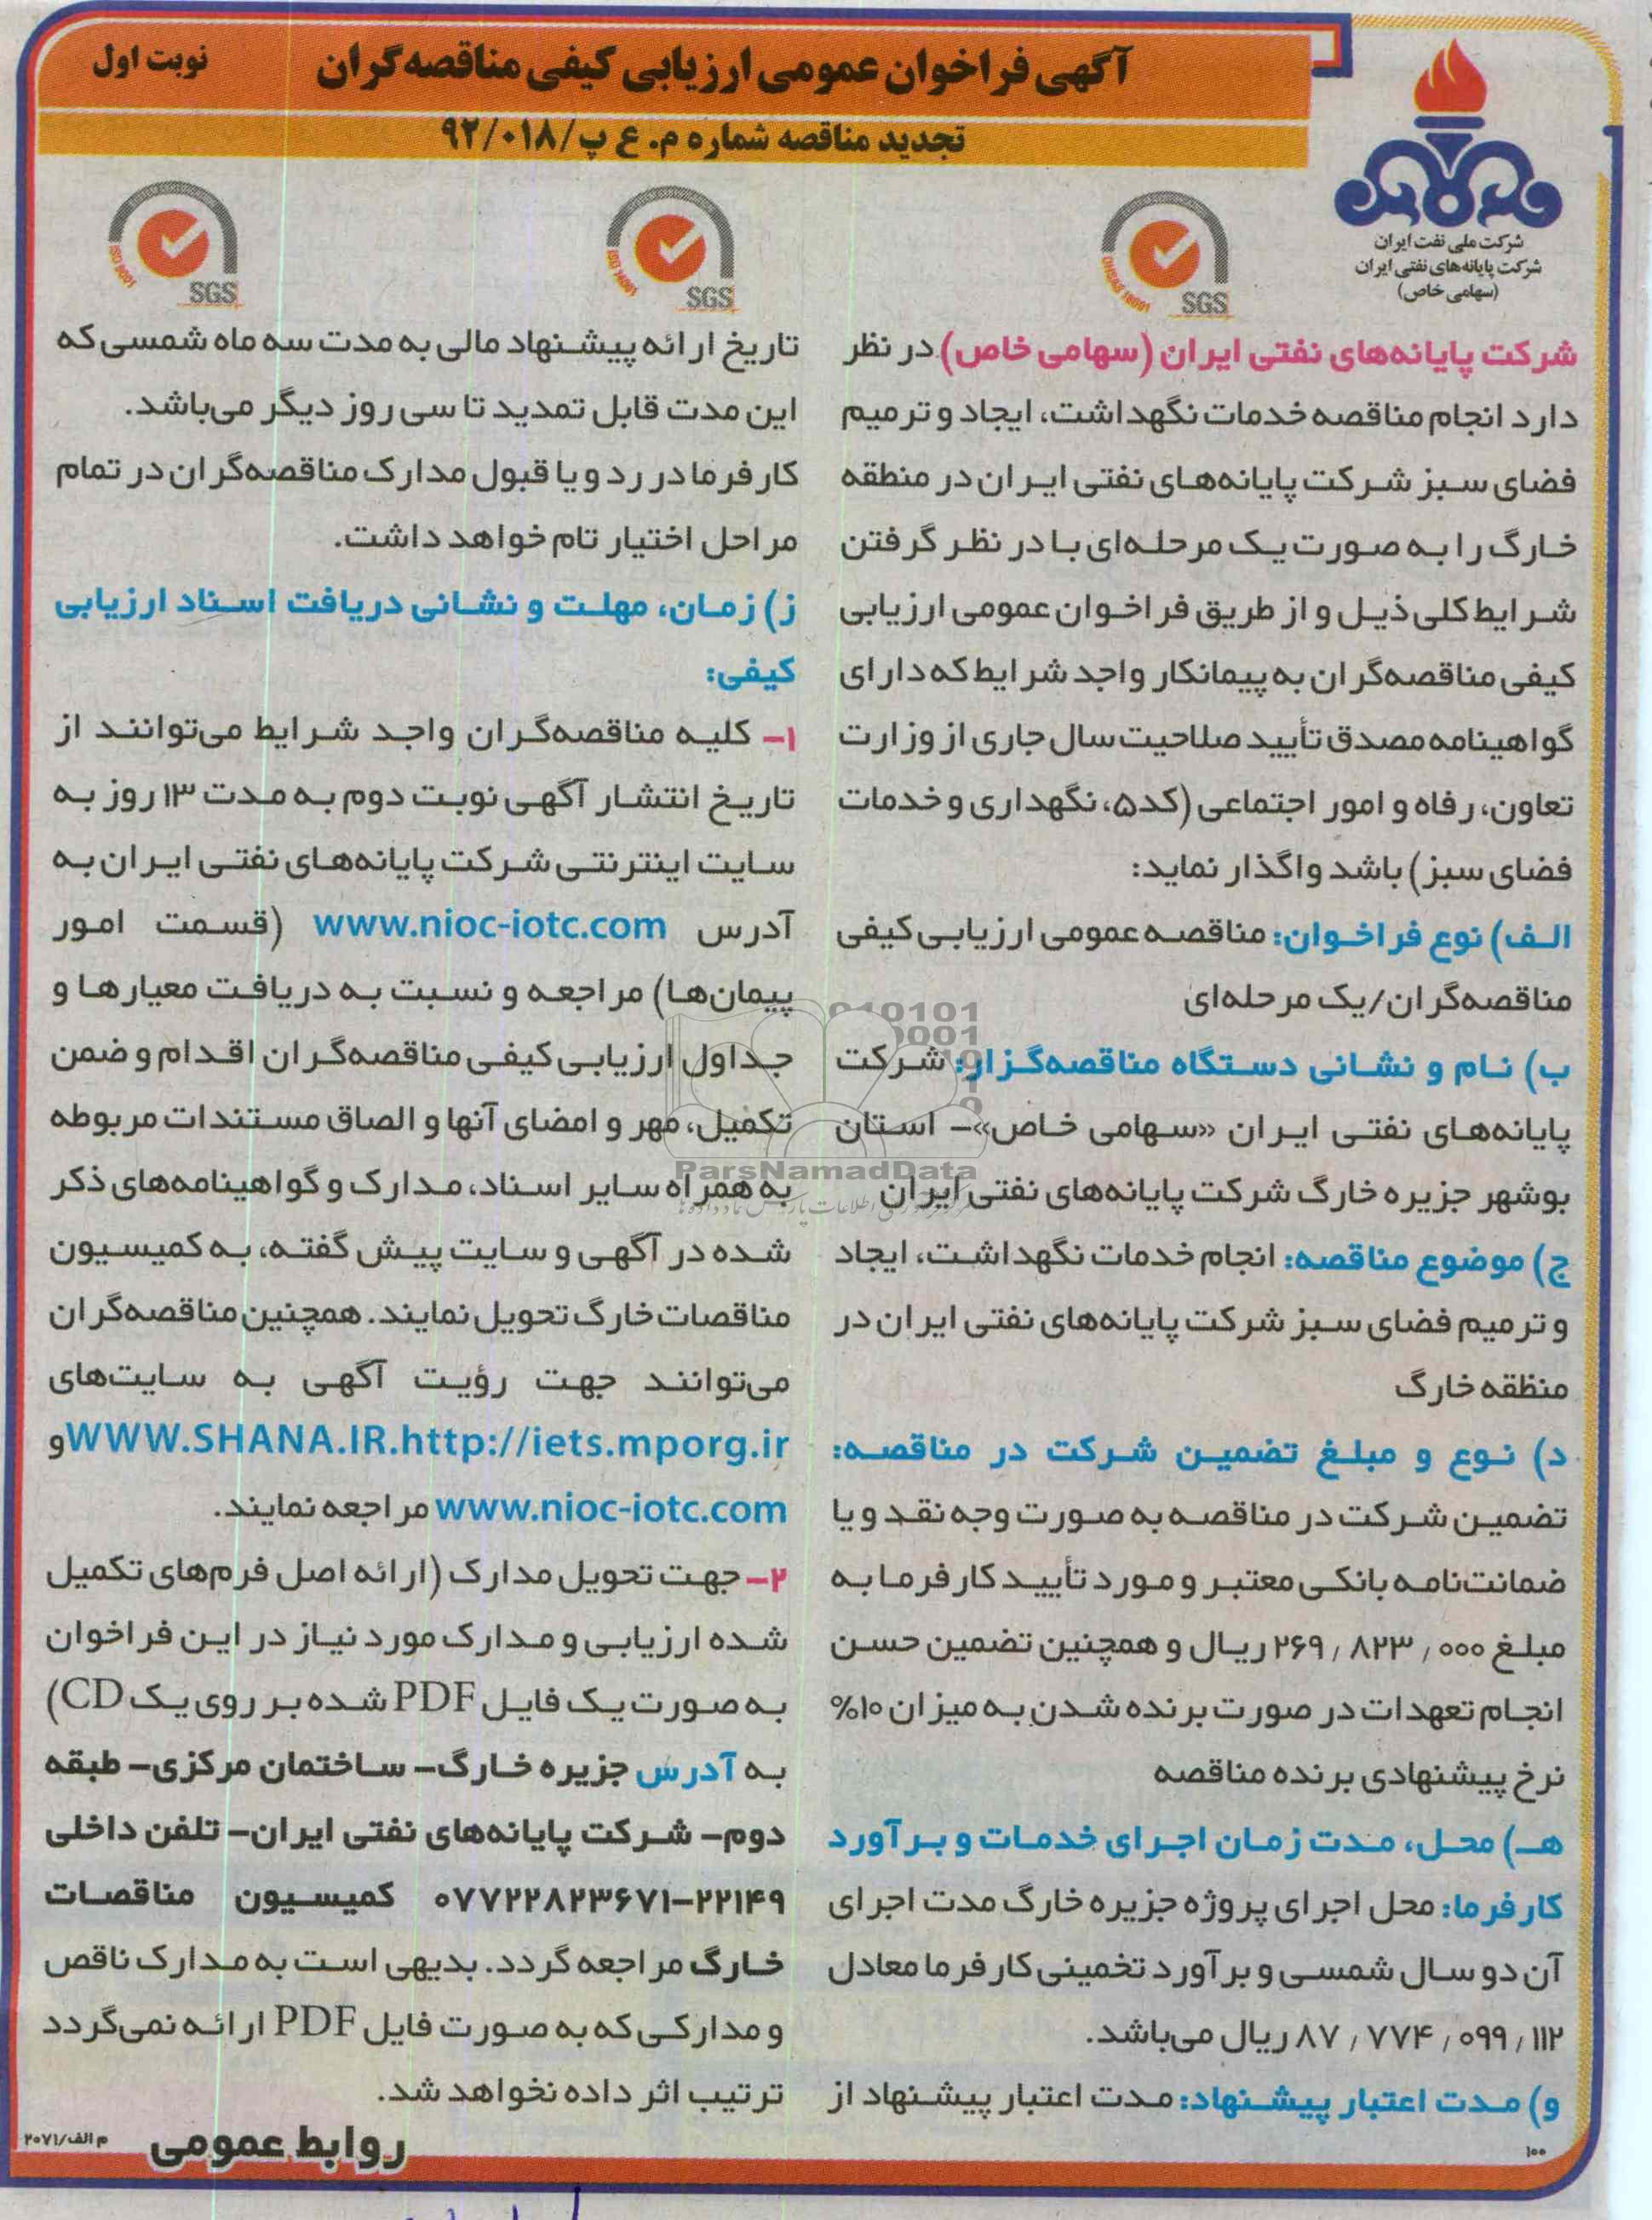 آگهی فراخوان عمومی ارزیابی کیفی مناقصه‌گران
نوبت اول
تجدید مناقصه شماره م. ع پ/۹۲/۰۱۸
شرکت ملی نفت ایران
شرکت پایانه‌های نفتی ایران
(سهامی خاص)
OHSAS 18001
SGS
ISO 14001
SGS
ISO 9001
SGS
شرکت پایانه‌های نفتی ایران (سهامی خاص) در نظر
دارد انجام مناقصه خدمات نگهداشت، ایجاد و ترمیم
فضای سبز شرکت پایانه‌های نفتی ایران در منطقه
خارگ را به صورت یک مرحله‌ای با در نظر گرفتن
شرایط کلی ذیل و از طریق فراخوان عمومی ارزیابی
کیفی مناقصه‌گران به پیمانکار واجد شرایط که دارای
گواهینامه مصدق تأیید صلاحیت سال جاری از وزارت
تعاون، رفاه و امور اجتماعی (کد۵، نگهداری و خدمات
فضای سبز) باشد واگذار نماید:
الف) نوع فراخوان: مناقصه عمومی ارزیابی کیفی
مناقصه‌گران/یک مرحله‌ای
ب) نام و نشانی دستگاه مناقصه‌گزار: شرکت
پایانه‌های نفتی ایران «سهامی خاص»- استان
بوشهر جزیره خارگ شرکت پایانه‌های نفتی ایران
ج) موضوع مناقصه: انجام خدمات نگهداشت، ایجاد
و ترمیم فضای سبز شرکت پایانه‌های نفتی ایران در
منطقه خارگ
د) نوع و مبلغ تضمین شرکت در مناقصه:
تضمین شرکت در مناقصه به صورت وجه نقد و یا
ضمانت‌نامه بانکی معتبر و مورد تأیید کارفرما به
مبلغ ۲۶۹٫۸۲۳٫۰۰۰ ریال و همچنین تضمین حسن
انجام تعهدات در صورت برنده شدن به میزان ۱۰%
نرخ پیشنهادی برنده مناقصه
هـ) محل، مدت زمان اجرای خدمات و برآورد
کارفرما: محل اجرای پروژه جزیره خارگ مدت اجرای
آن دو سال شمسی و برآورد تخمینی کارفرما معادل
۸۷٫۷۷۴٫۰۹۹٫۱۱۲ ریال می‌باشد.
و) مدت اعتبار پیشنهاد: مدت اعتبار پیشنهاد از
۱۰۰
تاریخ ارائه پیشنهاد مالی به مدت سه ماه شمسی که
این مدت قابل تمدید تا سی روز دیگر می‌باشد.
کارفرما در رد و یا قبول مدارک مناقصه‌گران در تمام
مراحل اختیار تام خواهد داشت.
ز) زمان، مهلت و نشانی دریافت اسناد ارزیابی
کیفی:
۱- کلیه مناقصه‌گران واجد شرایط می‌توانند از
تاریخ انتشار آگهی نوبت دوم به مدت ۱۳ روز به
سایت اینترنتی شرکت پایانه‌های نفتی ایران به
آدرس www.nioc-iotc.com (قسمت امور
پیمان‌ها) مراجعه و نسبت به دریافت معیارها و
جداول ارزیابی کیفی مناقصه‌گران اقدام و ضمن
تکمیل، مهر و امضای آنها و الصاق مستندات مربوطه
به همراه سایر اسناد، مدارک و گواهینامه‌های ذکر
شده در آگهی و سایت پیش گفته، به کمیسیون
مناقصات خارگ تحویل نمایند. همچنین مناقصه‌گران
می‌توانند جهت رؤیت آگهی به سایت‌های
WWW.SHANA.IR.http://iets.mporg.ir و
www.nioc-iotc.com مراجعه نمایند.
۲- جهت تحویل مدارک (ارائه اصل فرم‌های تکمیل
شده ارزیابی و مدارک مورد نیاز در این فراخوان
به صورت یک فایل PDF شده بر روی یک CD)
به آدرس جزیره خارگ- ساختمان مرکزی- طبقه
دوم- شرکت پایانه‌های نفتی ایران- تلفن داخلی
۲۲۱۴۹-۰۷۷۲۲۸۲۳۶۷۱ کمیسیون مناقصات
خارگ مراجعه گردد. بدیهی است به مدارک ناقص
و مدارکی که به صورت فایل PDF ارائه نمی‌گردد
ترتیب اثر داده نخواهد شد.
روابط عمومی
م الف/۲۰۷۱
ParsNamadData